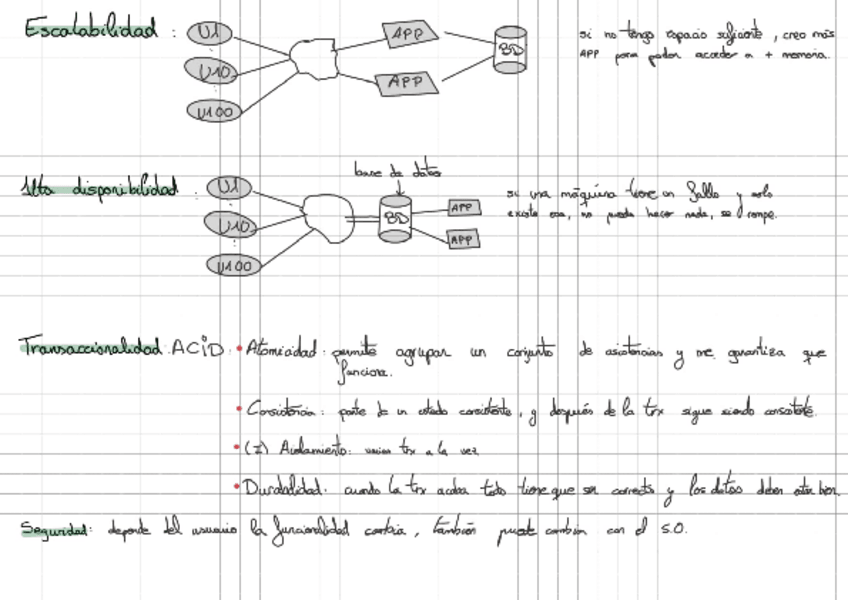 Escalabilidad :
U1
U10
U100
APP
APP
BD
si no tengo espacio suficiente , creo más
APP para poder acceder a + memoria.
Alta disponibilidad :
U1
U10
U100
base de datos
BD
APP
APP
si una máquina tiene un fallo y solo
existe esa, no puedo hacer nada, se rompe.
Transaccionalidad ACiD :
• Atomicidad : permite agrupar un conjunto de y me garantiza que
funciona.
• Consistencia : parte de un estado consistente , y después de la trx sigue siendo consistente.
• (I) Aislamiento: varias trx a la vez
• Durabilidad. cuando la trx acaba todo tiene que ser correcto y los datos deben estar bien.
Seguridad : depende del usuario la funcionalidad cambia , también puede cambiar con el S.O.